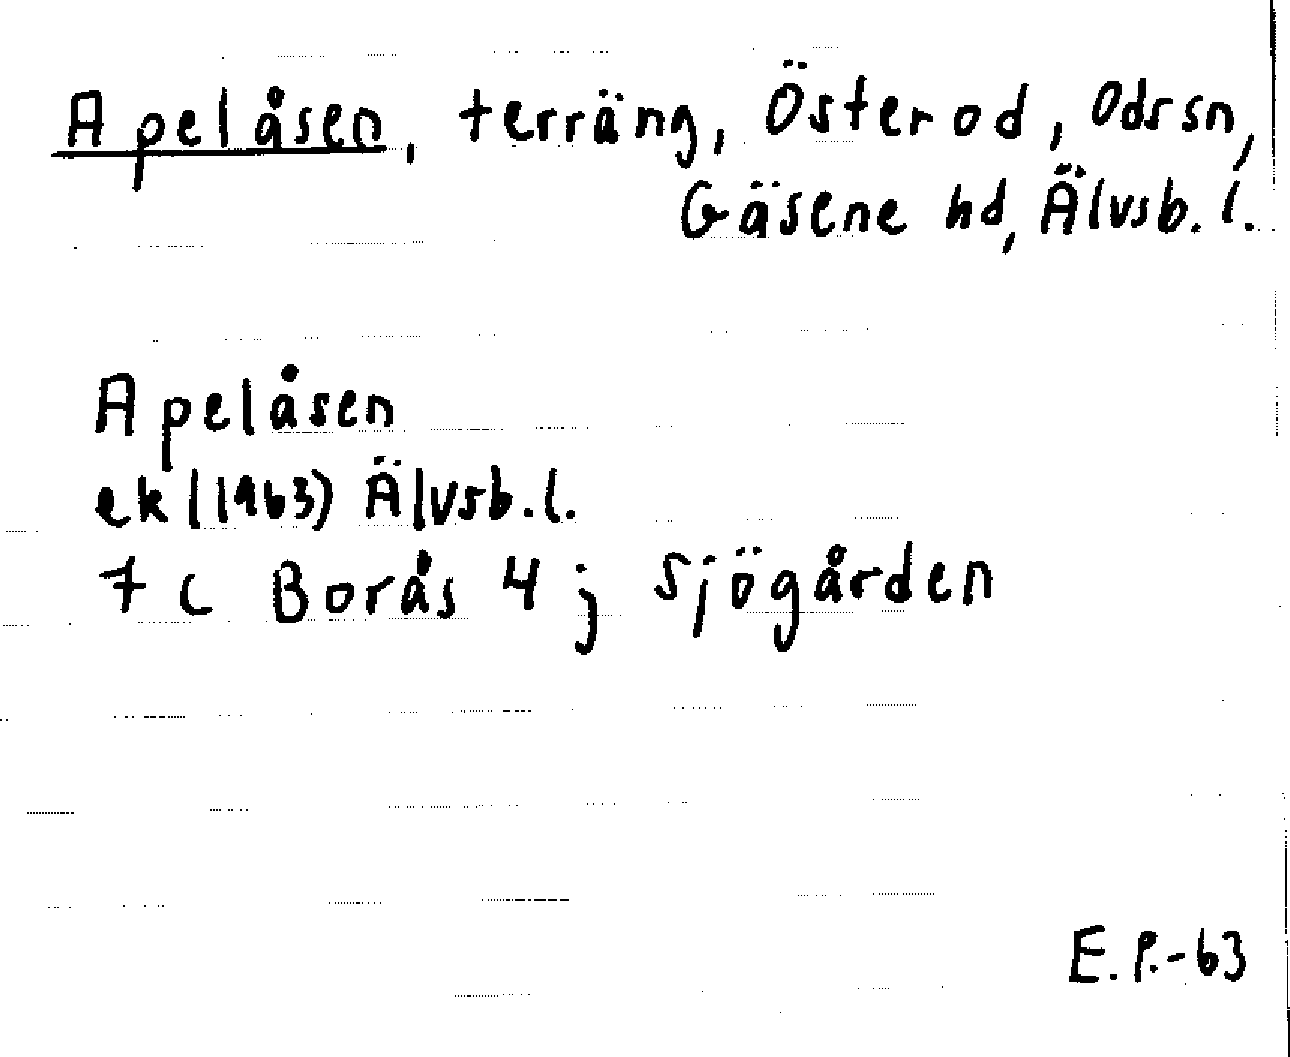 Apelåsen, terräng, Österod, Od ssn,
Gäsene hd, Älvsb. l.
Apelåsen
ek (1963) Älvsb. l.
7 c Borås 4 j Sjögården
E. P.-63